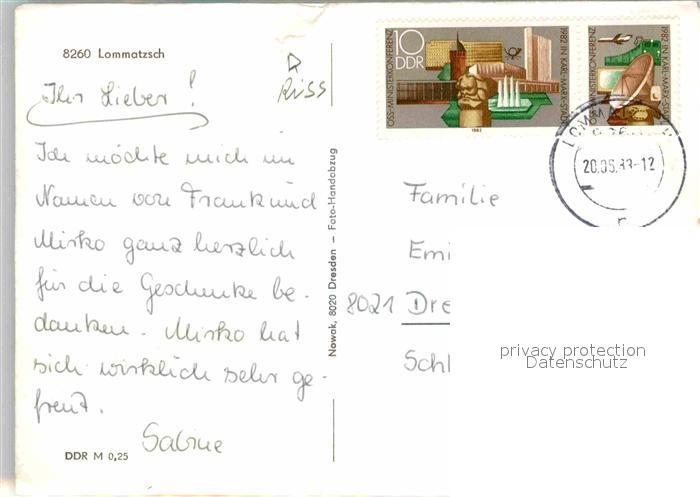 8260 Lommatzsch
Ihr Lieben!
RISS
Ich möchte mich im
Namen von Frank und
Mirko ganz herzlich
für die Geschenke be-
danken. Mirko hat
sich wirklich sehr ge-
freut.
Sabine
DDR M 0,25
Nowak, 8020 Dresden – Foto-Handabzug
10
DDR
OSS-MINISTERKONFERENZ
1982 IN KARL-MARX-STADT
1982
1982 IN KARL-MARX-STADT
20.05.83-12
Familie
Emi
8021 Dre
Schl
privacy protection
Datenschutz